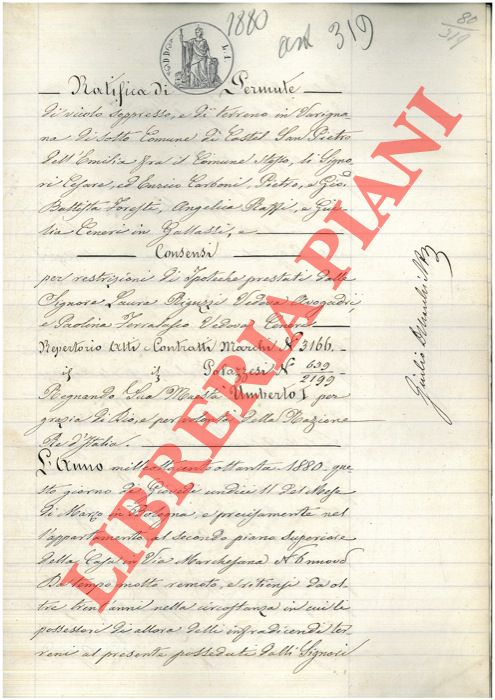 1880
art 319
80
319
L. 1
Ratifica di Permute
di vicolo soppresso, e di terreno in Varigna
na di Sotto Comune di Castel San Pietro
dell'Emilia fra il Comune stesso, li Signo
ri Cesare, ed Enrico Carboni, Pietro, e Gio.
Battista Foresti, Angelia Raffi, e Giu
lia Ceneri in Gallassi, e
Consensi
per restrizioni di Ipoteche prestati dalle
Signore Laura Vedova Avogadri,
e Paolina Vedova Ceneri
Repertorio Atti e Contratti Marchi N. 3166.
id id Potazzesi N. 639
2199
Regnando Sua Maestà Umberto I per
grazia di Dio, e per volontà della Nazione
Re d'Italia.
L'Anno milleottocentottanta 1880. que
sto giorno di Giovedì undici 11 del Mese
di Marzo in Bologna, e precisamente nel
l'appartamento al secondo piano superiore
della Casa in Via Marchesana N. 6 nuovo
Da tempo molto remoto, e ritiensi da ol
tre trent'anni nella circostanza in cui li
possessori di allora delli infradicendi ter
reni al presente posseduti dalli Signori
Giulio Marchi
LIBRERIA PIANI